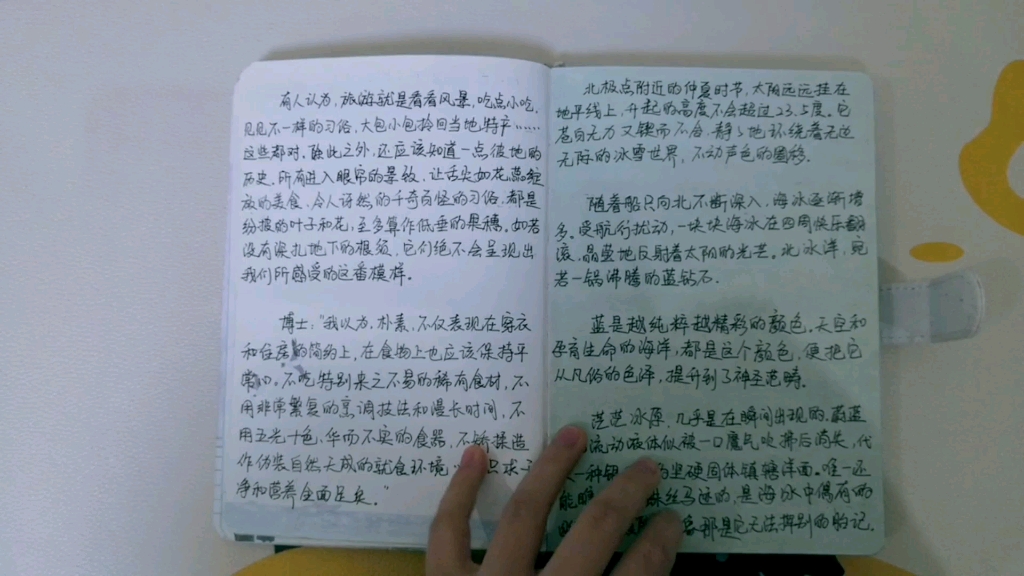 有人认为，旅游就是看看风景，吃点小吃，
见见不一样的习俗，大包小包拎回当地特产……
这些都对。除此之外，还应该知道一点彼地的
历史。所有进入眼帘的景致，让舌尖如花蕊绽
放的美食，令人讶然的千奇百怪的习俗，都是
纷披的叶子和花，至多算作低垂的果穗，如若
没有深扎地下的根须，它们绝不会呈现出
我们所感受的这番模样。
博士："我以为，朴素，不仅表现在穿衣
和住房的简约上，在食物上也应该保持平
常心，不吃特别来之不易的稀有食材，不
用非常繁复的烹调技法和漫长时间，不
用五光十色，华而不实的食器，不矫揉造
作伪装自然天成的就食环境，只求
净和营养全面足矣。"
北极点附近的仲夏时节，太阳远远挂在
地平线上，升起的高度不会超过23.5度。它
苍白无力又锲而不舍，静静地环绕着无边
无际的冰雪世界，不动声色的圆移。
随着船只向北不断深入，海冰逐渐增
多。受航行扰动，一块块海冰在四周快乐翻
滚，晶蓝地反射着太阳的光芒。北冰洋，宛
若一锅沸腾的蓝钻石。
蓝是越纯粹越精彩的颜色。天空和
孕育生命的海洋，都是这个颜色，便把它
从凡俗的色泽，提升到了神圣范畴。
茫茫冰原，几乎是在瞬间出现的。蔚蓝
流动液体似被一口魔气吹拂后消失，代
一种坚硬固体镇辖洋面。唯一还
能丝马迹的，是海冰中偶有的
都是它无法挥别的胎记。